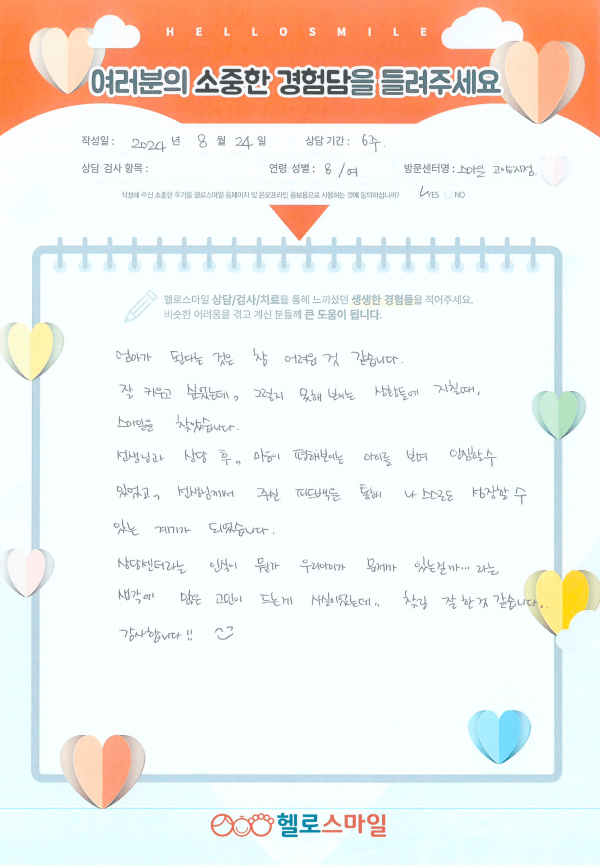 HELLOSMILE
여러분의 소중한 경험담을 들려주세요
작성일 : 2024 년 8 월 24 일 상담 기간 : 6주.
상담 검사 항목 : 연령 성별 : 8 / 여 방문센터명 : 스마일 고양지점.
작성해 주신 소중한 후기를 헬로스마일 홈페이지 및 온오프라인 홍보용으로 사용하는 것에 동의하십니까? YES NO
헬로스마일 상담/검사/치료를 통해 느끼셨던 생생한 경험들을 적어주세요.
비슷한 어려움을 겪고 계신 분들께 큰 도움이 됩니다.
엄마가 된다는 것은 참 어려운 것 같습니다.
잘 키우고 싶었는데, 그렇지 못해 보이는 상황들에 지칠때,
스마일을 찾았습니다.
선생님과 상담 후, 마음이 편해보이는 아이를 보며 안심할수
있었고, 선생님께서 주신 피드백을 통해 나 스스로도 성장할 수
있는 계기가 되었습니다.
상담센터라는 인식이 뭔가 우리아이가 문제가 있는건가... 라는
생각에 많은 고민이 드는게 사실이었는데.. 찾길 잘 한것 같습니다..
감사합니다!!
헬로스마일